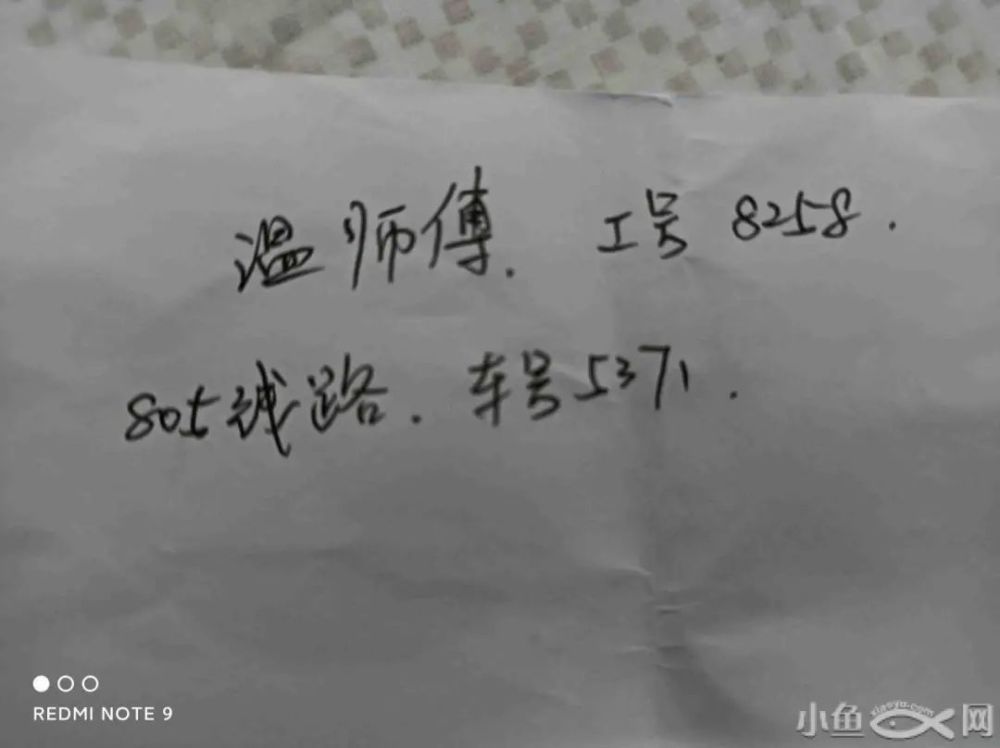 温师傅. 工号 8258.
805线路. 车号5371.
REDMI NOTE 9
小鱼网
xiaoyu.com